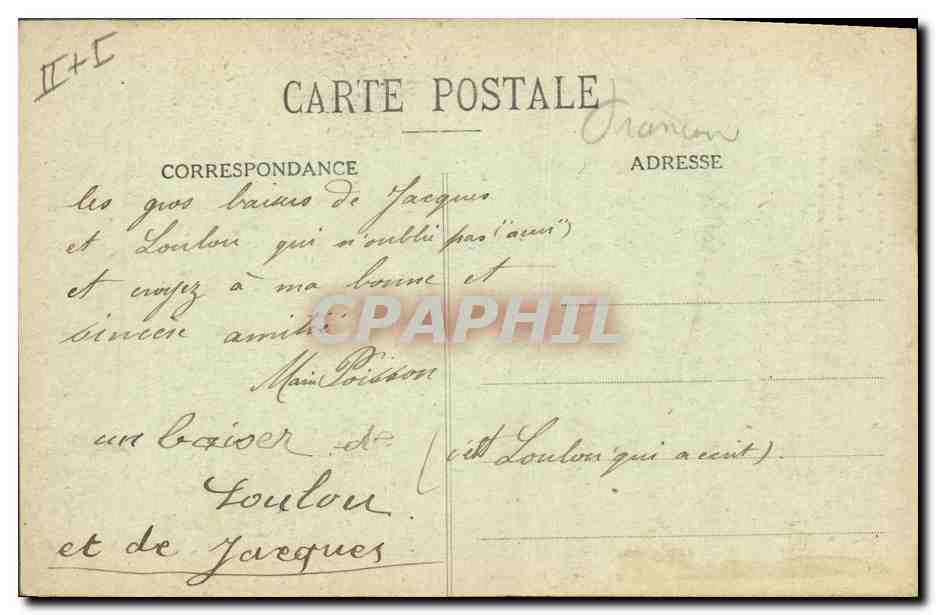 II+I
CARTE POSTALE
CORRESPONDANCE
ADRESSE
les gros baisers de Jacques
et Loulou qui n'oublie pas
et croyez à ma bonne et
sincère amitié
Poisson
un baiser de
Loulou
et de Jacques
(c'est Loulou qui a écrit).
CPAPHIL